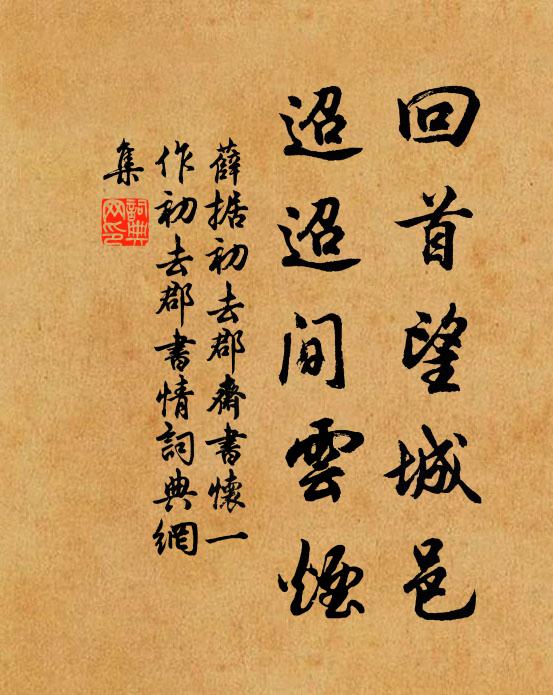 回首望城邑
迢迢間雲煙
薛据初去郡齋書懷一
作初去郡書情詞典網
集
詞典網印